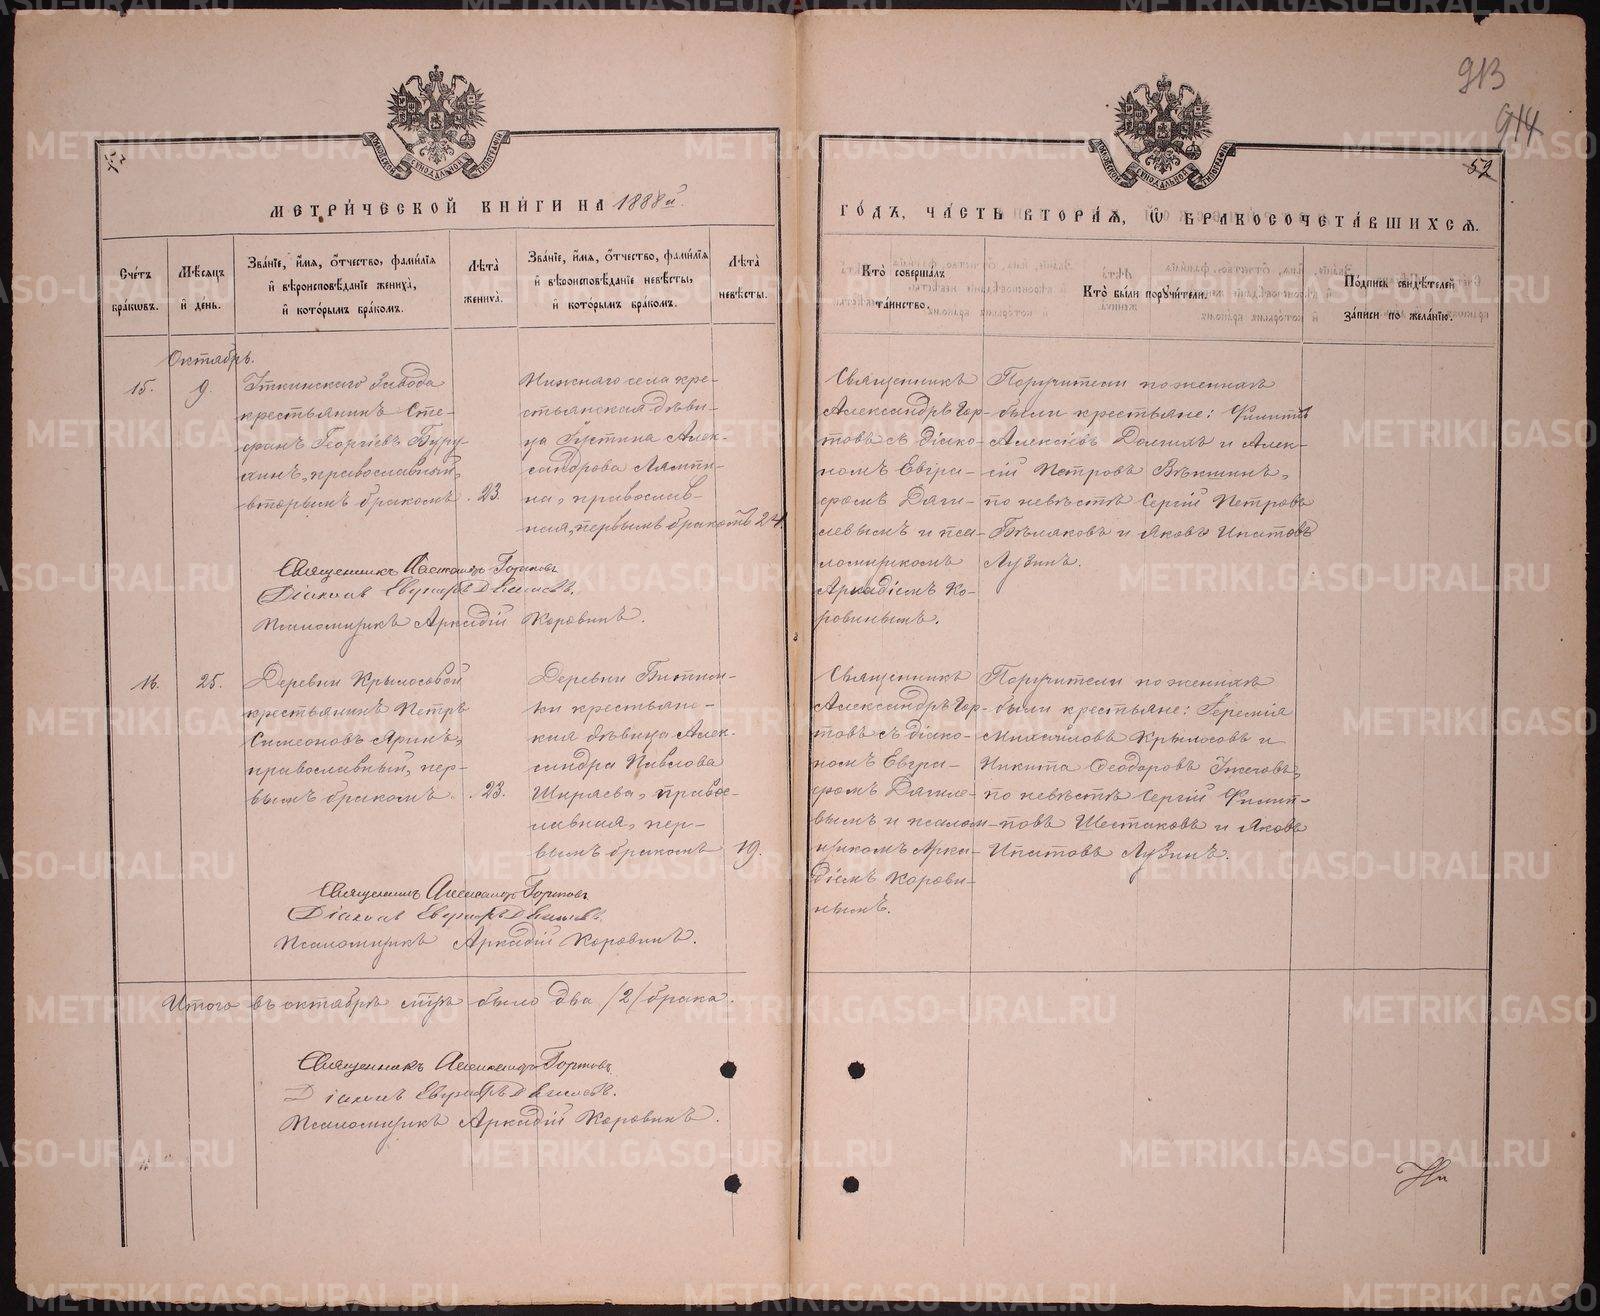 913
914
52
МЕТРИЧЕСКОЙ КНИГИ НА 1888й
ГОДЪ, ЧАСТЬ ВТОРАЯ, Ѡ БРАКОСОЧЕТАВШИХСЯ.
Счетъ браковъ.
Мѣсяцъ и день.
Званіе, имя, отчество, фамилія и вѣроисповѣданіе жениха, и которымъ бракомъ.
Лѣта жениха.
Званіе, имя, отчество, фамилія и вѣроисповѣданіе невѣсты, и которымъ бракомъ.
Лѣта невѣсты.
Кто совершалъ таинство.
Кто были поручители.
Подпись свидѣтелей записи по желанію.
Октябрь.
15.
9.
Уткинскаго Завода
крестьянинъ Сте-
фанъ Георгіевъ
православный,
вторымъ бракомъ.
23.
Нижняго села кре-
стьянская дѣви-
ца Іустина Алек-
сандрова Ляпи-
на, православ-
ная, первымъ бракомъ
24.
Священникъ
Александръ Гор-
товъ съ діако-
номъ Евгра-
фомъ
и пса-
ломщикомъ
Аркадіемъ Ко-
ровинымъ.
Поручители по женихѣ
были крестьяне: Филиппъ
Алексіевъ и Алек-
сій Петровъ Вѣкшинъ,
по невѣстѣ Сергій Петровъ
Бѣляковъ и Яковъ Ипатовъ
Лузинъ.
Священникъ Александръ Гортовъ
Діаконъ Евграфъ
Псаломщикъ Аркадій Коровинъ.
16.
25.
Деревни Крылосовой
крестьянинъ Петръ
Симеоновъ Яринъ,
православный, пер-
вымъ бракомъ.
23.
Деревни Битим-
ки крестьянс-
кая дѣвица Алек-
сандра Павлова
Ширяева, правос-
лавная, пер-
вымъ бракомъ
19.
Священникъ
Александръ Гор-
товъ съ діако-
номъ Евгра-
фомъ
и псалом-
щикомъ Арка-
діемъ Корови-
нымъ.
Поручители по женихѣ
были крестьяне: Іеремія
Михайловъ Крылосовъ и
Никита Ѳеодоровъ
по невѣстѣ Сергій Филип-
повъ Шестаковъ и Яковъ
Ипатовъ Лузинъ.
Священникъ Александръ Гортовъ
Діаконъ Евграфъ
Псаломщикъ Аркадій Коровинъ.
Итого въ октябрѣ м-цѣ было два /2/ брака.
Священникъ Александръ Гортовъ
Діаконъ Евграфъ
Псаломщикъ Аркадій Коровинъ.
METRIKI.GASO-URAL.RU